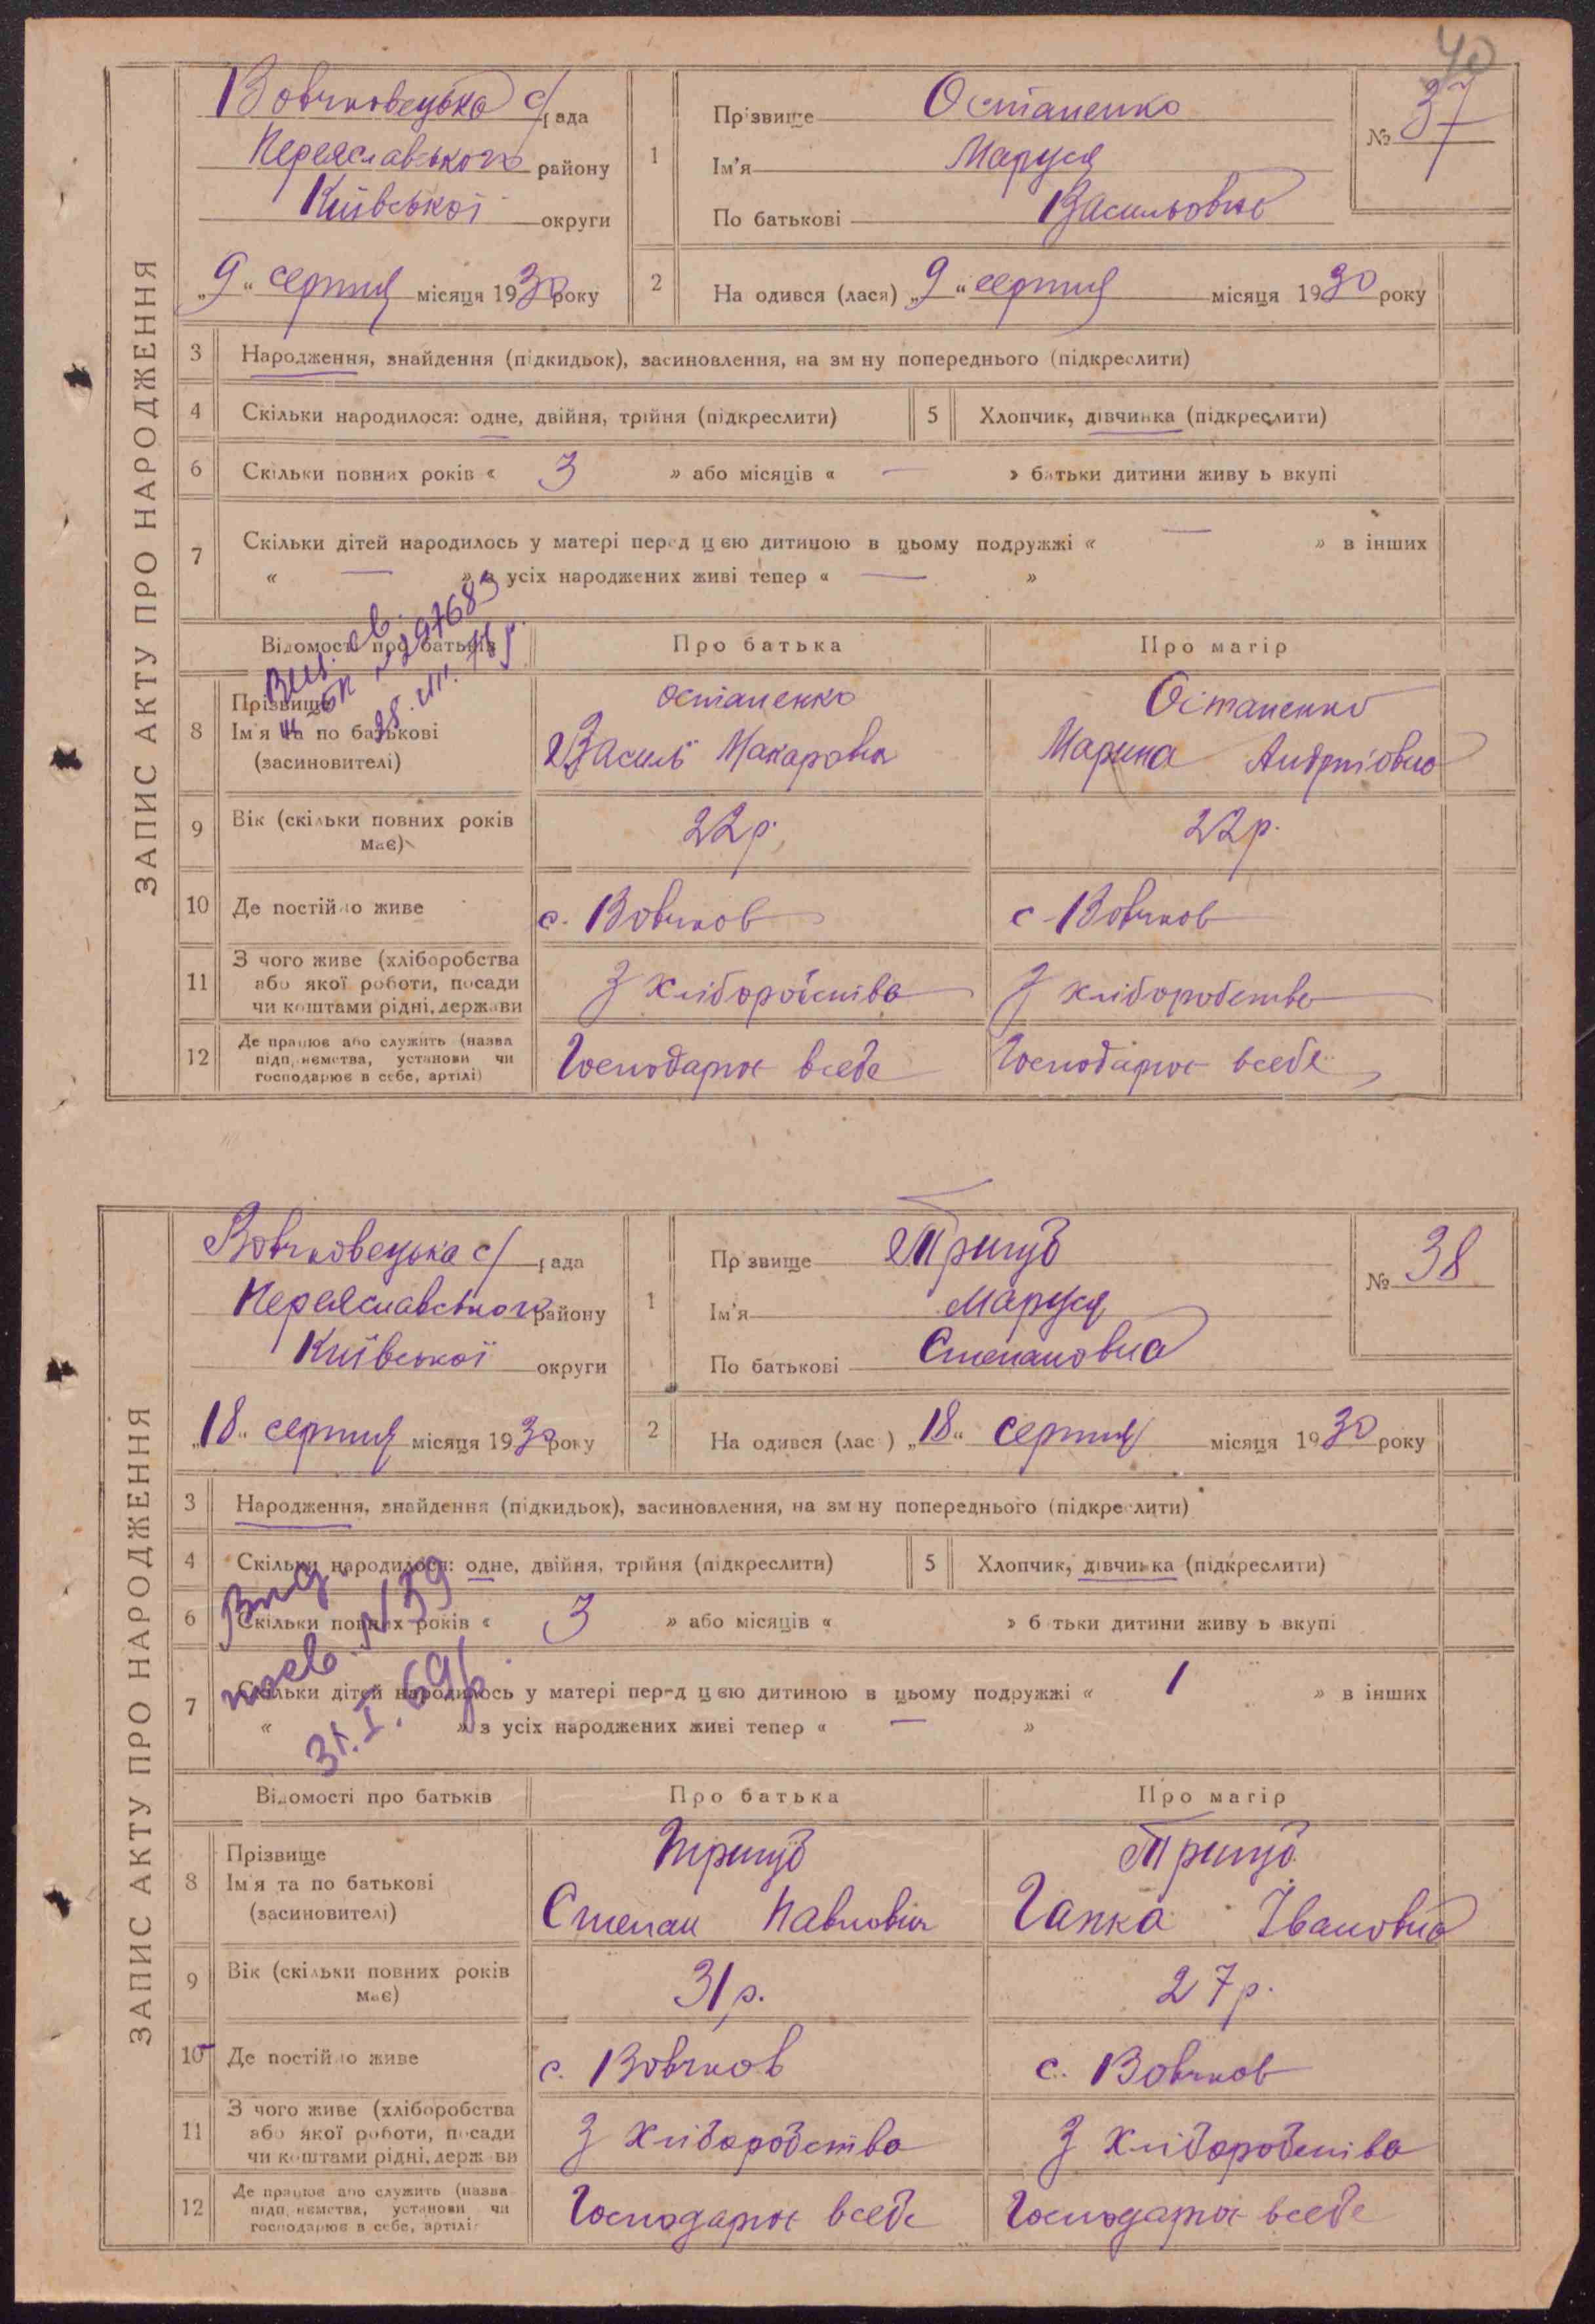 40
ЗАПИС АКТУ ПРО НАРОДЖЕННЯ
Вовчковецька с/рада
Переяславського району
Київської округи
„9“ серпня місяця 1930 року
1
Прізвище Остапенко
Ім'я Маруся
По батькові Васильовна
№ 37
2 На одився (лася) „9“ серпня місяця 1930 року
3 Народження, знайдення (підкидьок), засиновлення, на зм ну попереднього (підкреслити)
4 Скільки народилося: одне, двійня, трійня (підкреслити) 5 Хлопчик, дівчинка (підкреслити)
6 Скільки повних років « 3 » або місяців « — » батьки дитини живу ь вкупі
7 Скільки дітей народилось у матері перед цією дитиною в цьому подружжі « — » в інших
« — » з усіх народжених живі тепер « — »
Відомості про батьків Про батька Про матір
8 Прізвище Остапенко Остапенко
Ім'я та по батькові Василь Макарович Марина Андріівна
(засиновителі)
9 Вік (скільки повних років має) 22 р. 22 р.
10 Де постійно живе с. Вовчков с. Вовчков
11 З чого живе (хліборобства
або якої роботи, посади
чи коштами рідні, держави З хліборобства З хліборобства
12 Де працює або служить (назва
підприємства, установи чи
господарює в себе, артілі) Господарює всебе Господарює всебе
Вид. св.
№ 297683
28.VIII.
ЗАПИС АКТУ ПРО НАРОДЖЕННЯ
Вовчковецька с/рада
Переяславського району
Київської округи
„18“ серпня місяця 1930 року
1
Пр звище Тригуб
Ім'я Маруся
По батькові Степановна
№ 38
2 На одився (лас ) „18“ серпня місяця 1930 року
3 Народження, знайдення (підкидьок), засиновлення, на зм ну попереднього (підкреслити)
4 Скільки народилося: одне, двійня, трійня (підкреслити) 5 Хлопчик, дівчинка (підкреслити)
6 Скільки повних років « 3 » або місяців « » б тьки дитини живу ь вкупі
7 Скільки дітей народилось у матері перед цією дитиною в цьому подружжі « 1 » в інших
« » з усіх народжених живі тепер « — »
Вид.
№ 39
31.I.69р.
Відомості про батьків Про батька Про матір
8 Прізвище Тригуб Тригуб
Ім'я та по батькові Степан Павлович Гапка Івановна
(засиновителі)
9 Вік (скільки повних років має) 31 р. 27 р.
10 Де постійно живе с. Вовчков с. Вовчков
11 З чого живе (хліборобства
або якої роботи, посади
чи коштами рідні, держ ви З хліборобства З хліборобства
12 Де працює або служить (назва
підп иємства, установи чи
господарює в себе, артілі Господарює всебе Господарює всебе